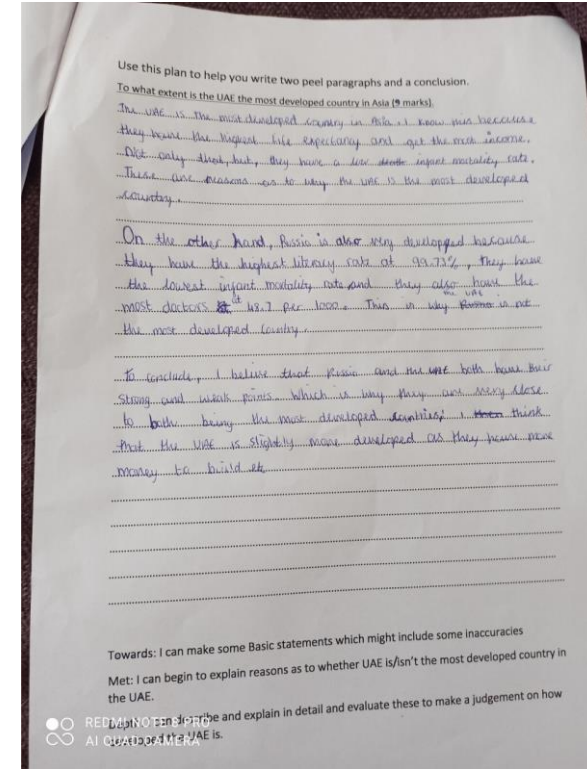 Use this plan to help you write two peel paragraphs and a conclusion.
To what extent is the UAE the most developed country in Asia (9 marks).
The UAE is the most developed country in Asia. I know this because
they have the highest life expectancy and get the most income.
Not only that, but, they have a low infant mortality rate.
These are reasons as to why the UAE is the most developed
country.
On the other hand, Russia is also very developped because
they have the highest literacy rate at 99.73%, they have
the lowest infant mortality rate and they also have the
most doctors at 48.7 per 1000. This is why the UAE is not
the most developed country.
To conclude, I believe that Russia and the UAE both have their
strong and weak points. Which is why they are very close
to both being the most developed countries; I think
that the UAE is slightly more developed as they have more
money to build etc
Towards: I can make some Basic statements which might include some inaccuracies
Met: I can begin to explain reasons as to whether UAE is/isn't the most developed country in
the UAE.
Depth: I can describe and explain in detail and evaluate these to make a judgement on how
developed the UAE is.
REDMI NOTE 8 PRO
AI QUAD CAMERA